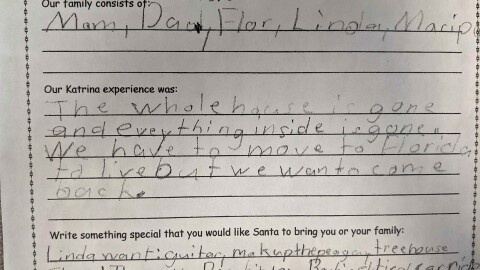 Our family consists of:
Mom, Dad, Flor, Linda, Marip
Our Katrina experience was:
The whole house is gone
and everything inside is gone.
We have to move to Florida
to live but we wan to come
back.
Write something special that you would like Santa to bring you or your family:
Linda want: guitar, makup treehouse